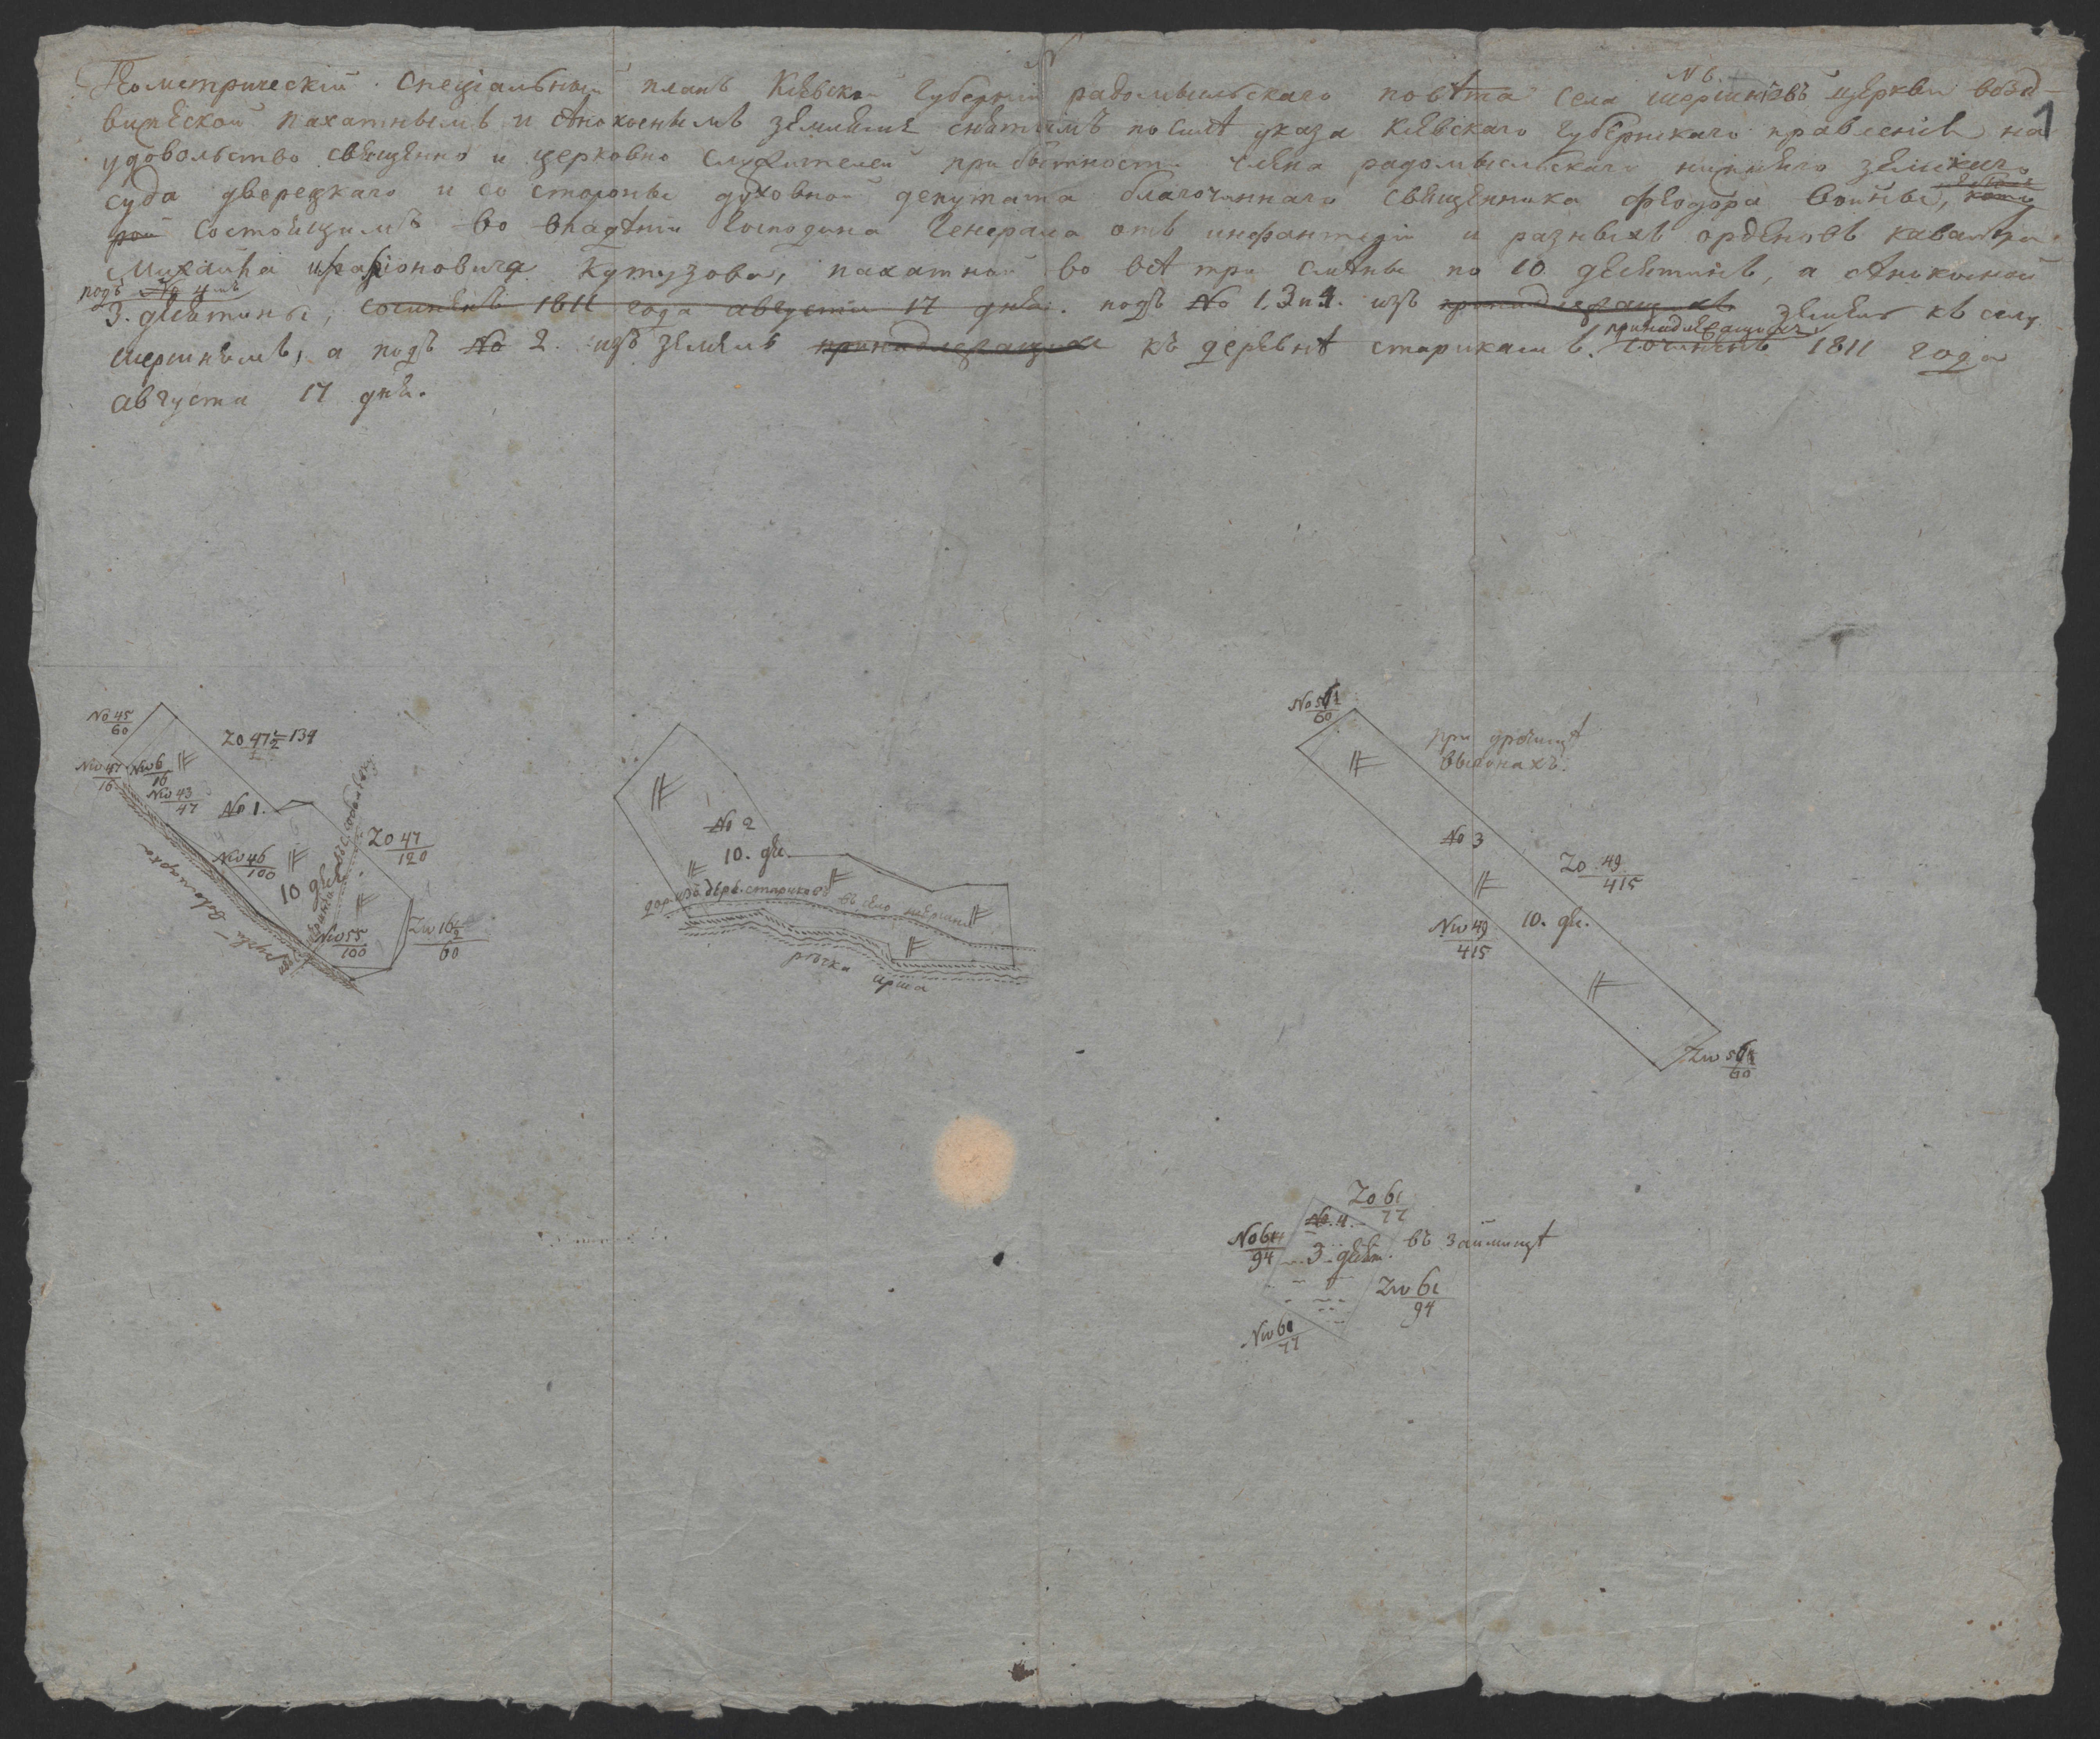 Геометрический Специальный планъ Киевской Губернии радомысльскаго повѣта села шершнювъ церкви возд-
виженской пахатнымъ и сѣнокоснымъ землямъ снятымъ по силѣ указа Киевскаго губернскаго правления на
удовольство священно и церковно служителей при бытности члена радомысльскаго нижняго земскаго
суда дворецкаго и со стороны духовной депутата благочиннаго священника феодора войны, кото
рой состоящимъ во владѣнии господина Генерала отъ инфантерии и разныхъ орденовъ кавалера
Михаила иларионовича Кутузова, пахатной во всѣ три смѣны по 10 десятинъ, а сѣнокосной
подъ No 4мъ
3. десятины, сочиненъ 1811 года августа 17 дня. подъ No 1. 3 и 4. изъ принадлежащихъ земель къ селу
шершнямъ, а подъ No 2. изъ земель принадлежащихъ къ деревнѣ старикамъ. принадлежащихъ сочиненъ 1811 года
августа 17 дня.
1
No 45
60
Zo 47½ 134
Nw 47
16
Nw 6
16
Nw 43
47
No 1.
Zo 47
120
Nw 46
100
10 дес.
Nw 55
100
Zw 16½
60
No 2
10. дес.
дор. изъ дерев. стариковъ въ село шершни
рѣчка ирша
No 5
60
при урочищѣ
выгонахъ.
No 3
Zo 49
415
Nw 49
415
10. дес.
Zw 5
60
Zo 61
77
No. 4.
No 61
94
3 десят.
въ займищѣ
Zw 61
94
Nw 61
77